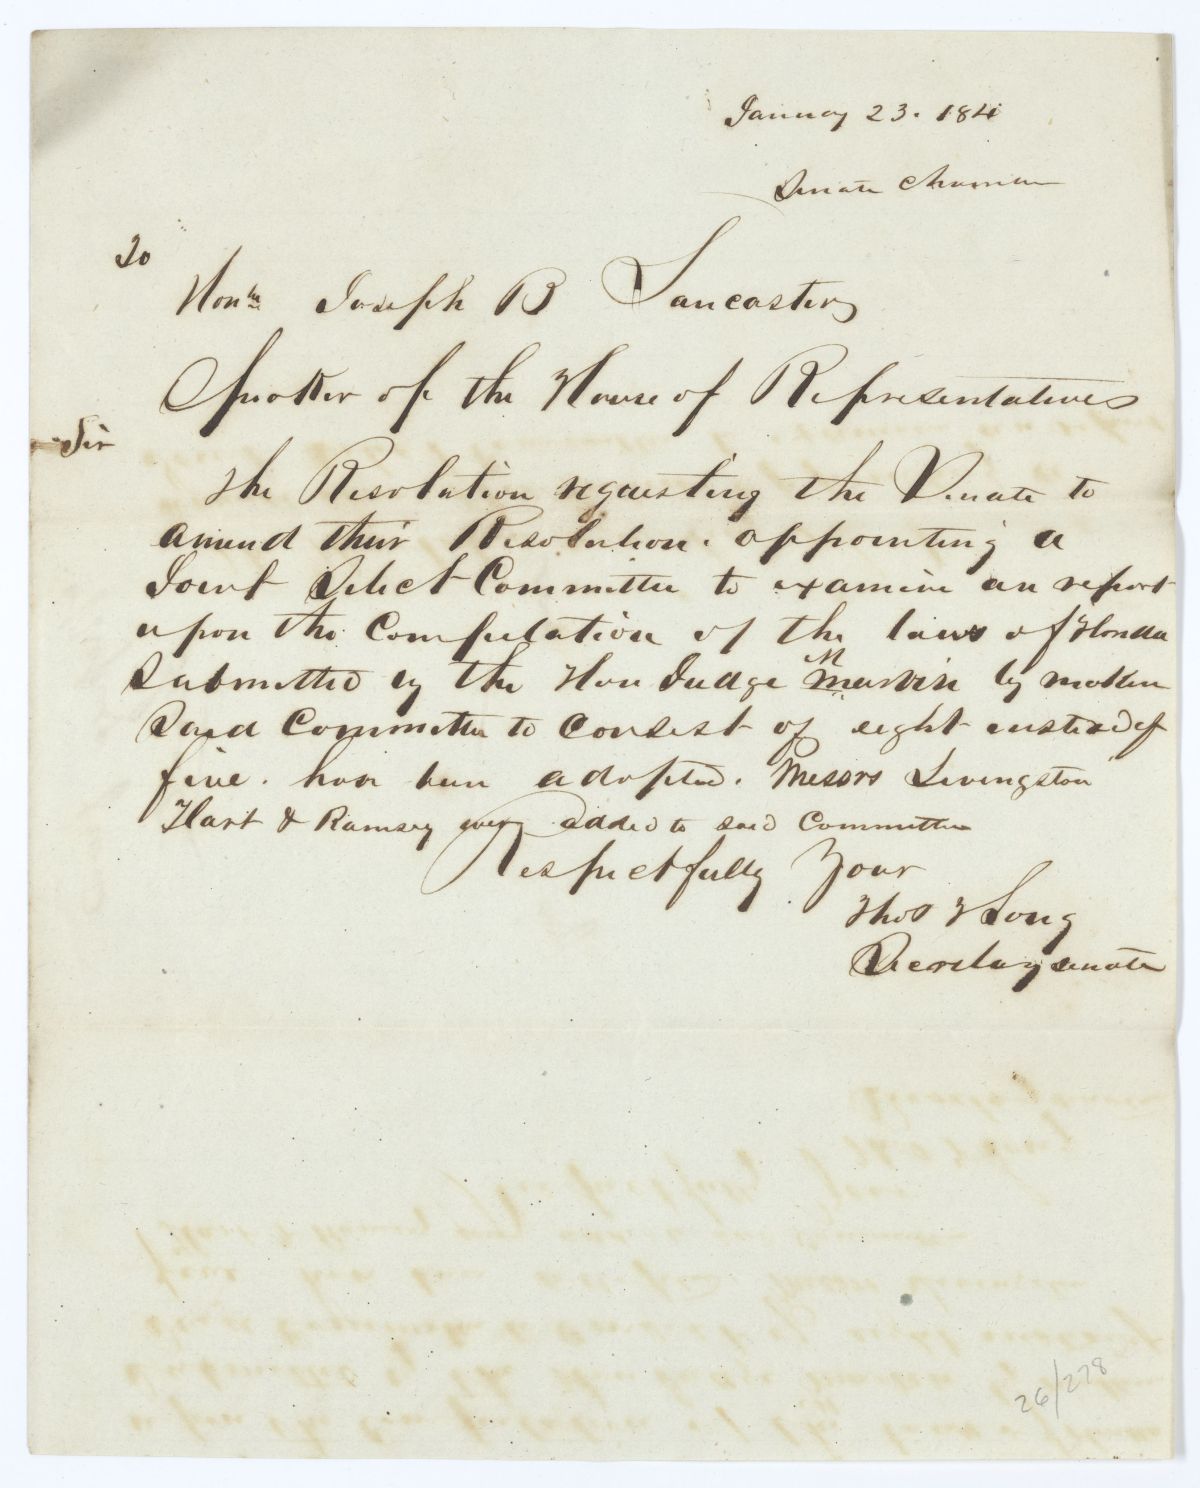 January 23. 184
Senate Chamber
To
Honle Joseph B Lancaster
Speaker of the House of Representatives
Sir
The Resolution requesting the Senate to
amend their Resolution. appointing a
Joint Select Committee to examine an report
upon the Compelation of the laws of Florida
Submitted by the Hon Judge Marvin by making
Said Committee to Consist of eight instead of
five. have been adopted. Messrs Livingston
Hart & Ramsey were added to said Committee
Respectfully Your
Thos T Long
Secretary Senate
26/278